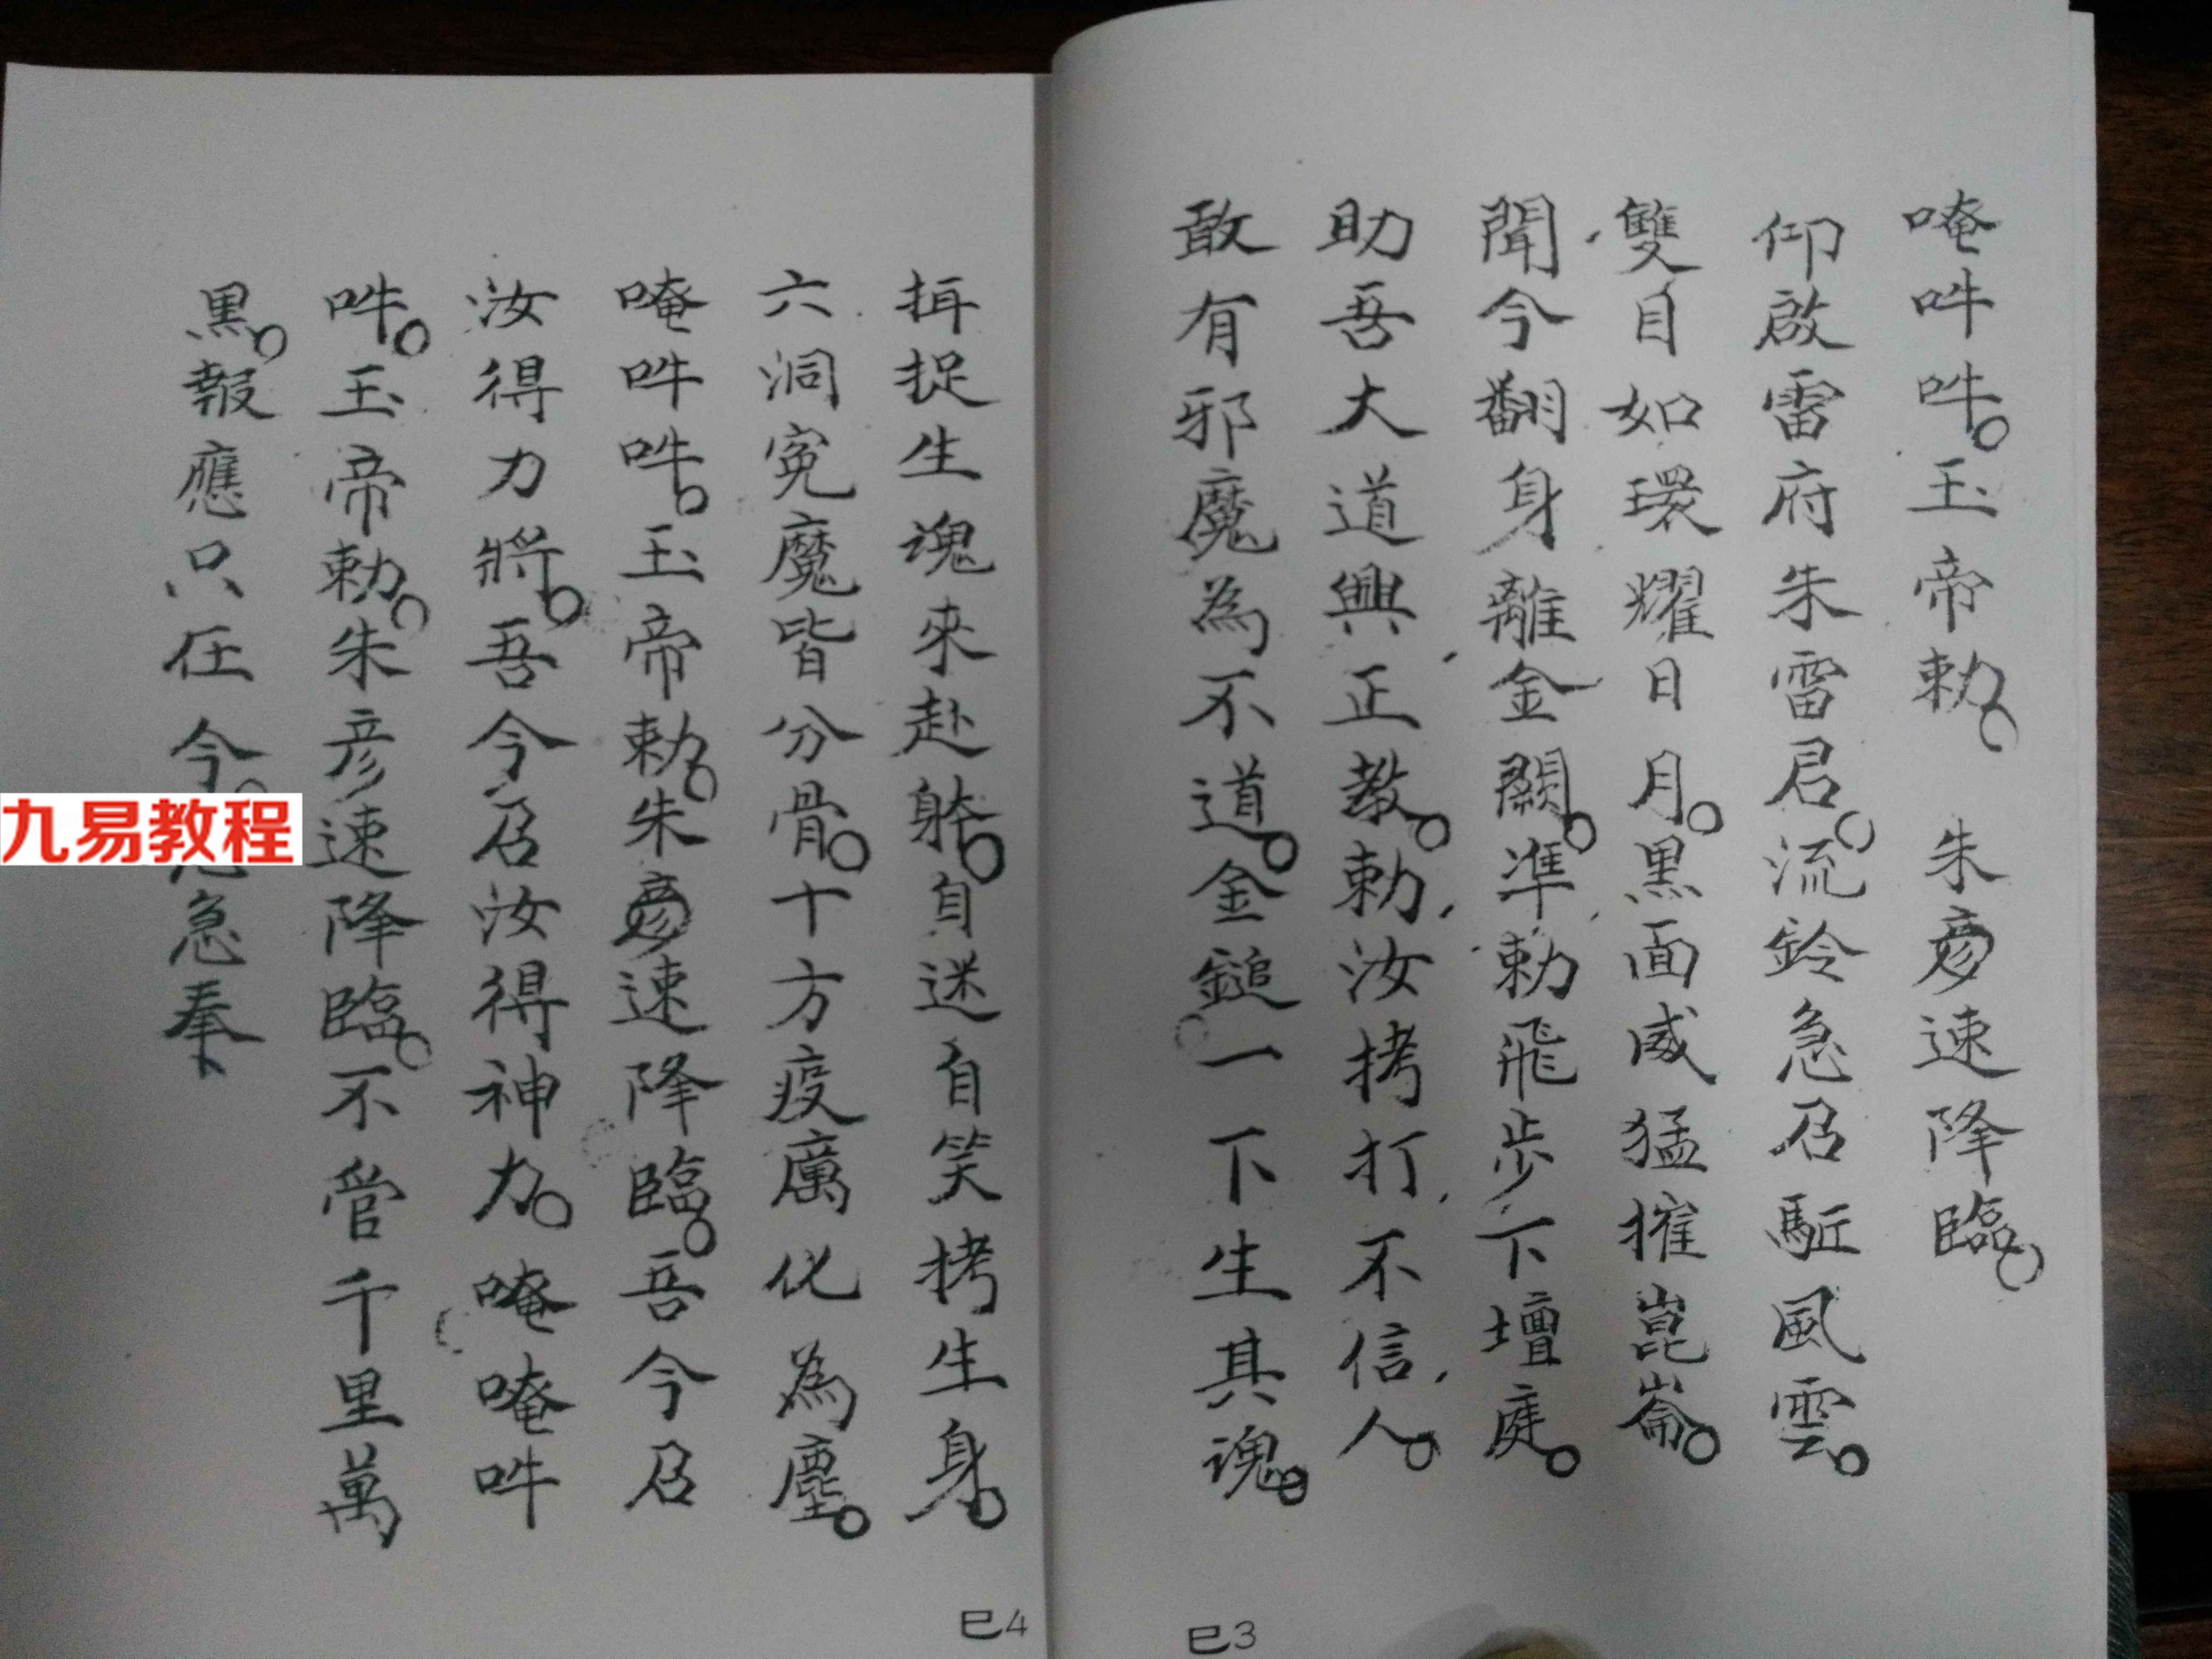 唵吽吽。玉帝勅。朱彦速降臨。
仰啟雷府朱雷君。流鈴急召駈風雲。
雙目如環耀日月。黑面威猛摧崑崙。
聞今翻身離金闕。準勅飛步下壇庭。
助吾大道興正教。勅汝拷打不信人。
敢有邪魔為不道。金鎚一下生其魂。
揖捉生魂來赴躰。自迷自笑拷生身。
六洞寃魔皆分骨。十方疫厲化為塵。
唵吽吽。玉帝勅。朱彦速降臨。吾今召
汝得力將。吾今召汝得神力。唵唵吽
吽。玉帝勅。朱彦速降臨。不管千里萬
黑。報應只在今。急奉
九易教程
巳3
巳4